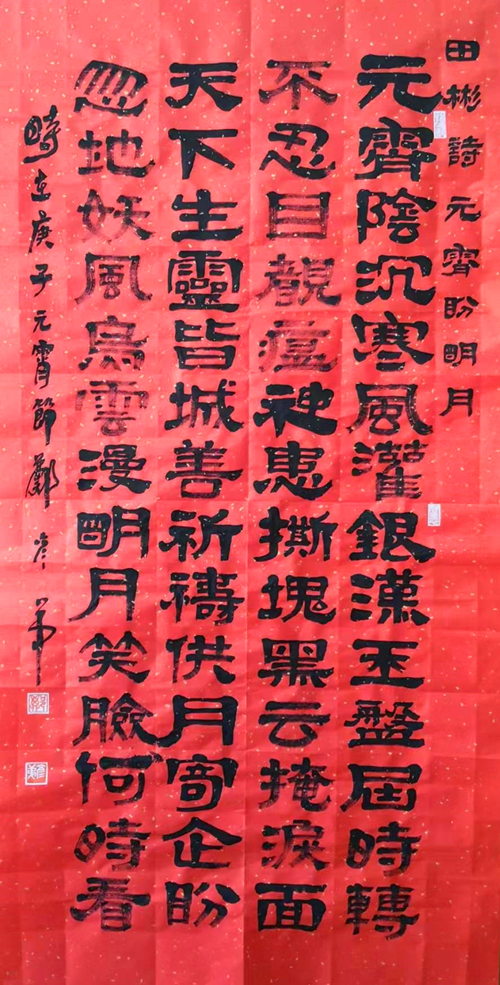 田彬詩元霄盼明月
元霄陰沉寒風灌銀漢玉盤屆時轉
不忍目覩瘟神惠撕塊黑云掩淚面
天下生靈皆城善祈禱供月寄企盼
忽地妖風烏雲漫明月笑臉何時看
時在庚子元宵節鄭